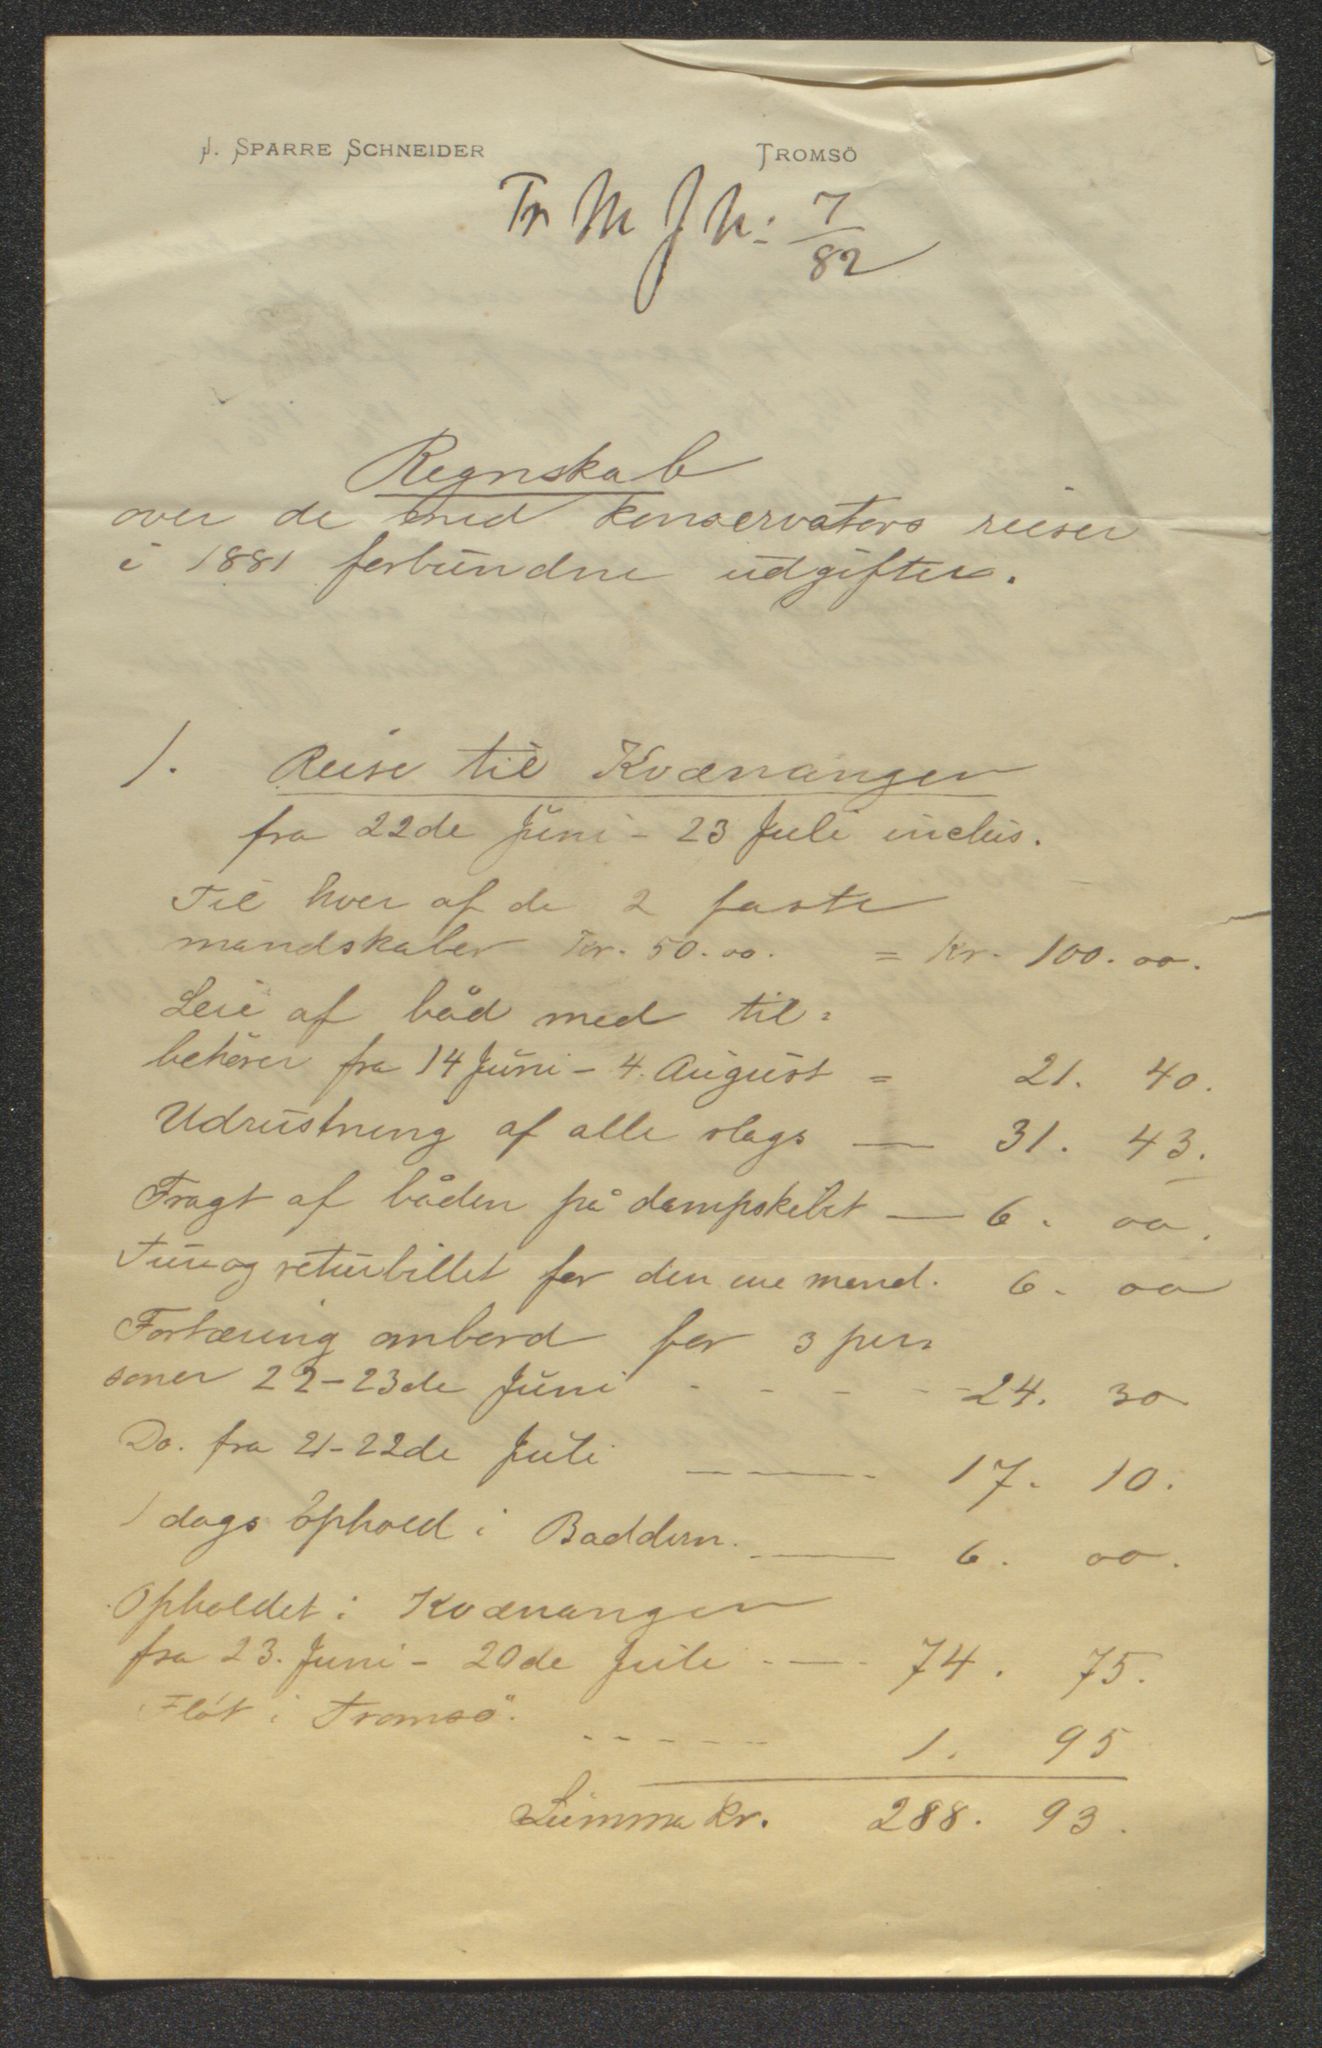 J. SPARRE SCHNEIDER TROMSÖ
Tr M J N: 7/82
Regnskab
over de med konservators reiser
i 1881 forbundne udgifter.
1. Reise til Kvænangen
fra 22de Juni - 23 Juli inclus.
Til hver af de 2 faste
mandskaber Kr. 50.00. = Kr. 100.00.
Leie af båd med til=
behører fra 14 Juni - 4. August = 21. 40.
Udrustning af alle slags — 31. 43.
Fragt af båden på dampskibet — 6. 00.
Tur og returbillet for den ene mand. 6. 00
Fortæring ombord for 3 per=
soner 22-23de Juni - - - - - 24. 30
Do. fra 21-22de Juli - — - 17. 10.
1 dags ophold i Baddern. — 6. 00.
Opholdet i Kvænangen
fra 23. Juni - 20de Juli - — - 74. 75.
Flöt i Tromsö. - - - - - 1. 95
Summa Kr. 288. 93.